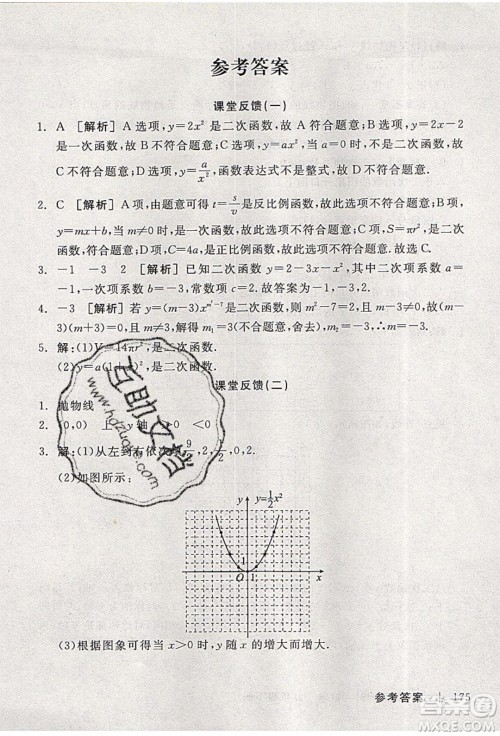 参考答案
课堂反馈(一)
1. A [解析] A选项,y=2x²是二次函数,故A符合题意;B选项,y=2x-2
是一次函数,故B不符合题意;C选项,当a=0时,不是二次函数,故
C不符合题意;D选项,y=a/x²,函数表达式不是整式,故D不符合题意.
2. C [解析] A项,由题意可得t=s/v是反比例函数,故此选项不符合题意;B项,
y=mx+b,当m≠0时,y是x的一次函数,故此选项不符合题意;
C=4a,是正比例函数,故此选项不符合题意.故选C.
3. -1 -3 2 [解析] 已知二次函数y=2-3x-x²,其中二次项系数a=
-1,一次项系数b=-3,常数项c=2.故答案为-1,-3,2.
4. -3 [解析] 若y=(m-3)x^(m²-7)是二次函数,则m²-7=2,且m-3≠0,故
(m-3)(m+3)=0,m≠3,解得m₁=3(不合题意,舍去),m₂=-3,∴m=-3.
5. 解:(1)V=14πr²,是二次函数.
(2)y=a(1+x)²,是二次函数.
课堂反馈(二)
1. 抛物线
2. (0,0) 上 y轴 <0
3. 解:(1)从左到右依次填9/2,2,0,2.
(2)如图所示:
y y=1/2x²
1
O 1 x
(3)根据图象可得当x>0时,y随x的增大而增大.
参考答案 175
互助文档
www.hdzuoye.com